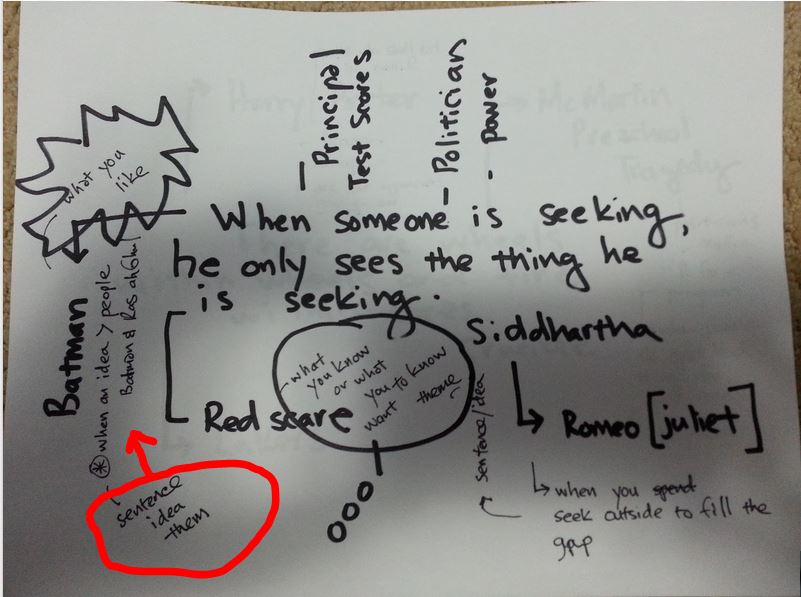 - Principal
Test Scores
- Politician
- power
what you
like
When someone is seeking,
he only sees the thing he
is seeking.
Siddhartha
Batman
* when an idea > people
Batman & Ras
- what
you know
or what
you to know
want theme
Red scare
sentence/idea
Romeo [juliet]
when you spend
seek outside to fill the
gap
sentence
idea
them